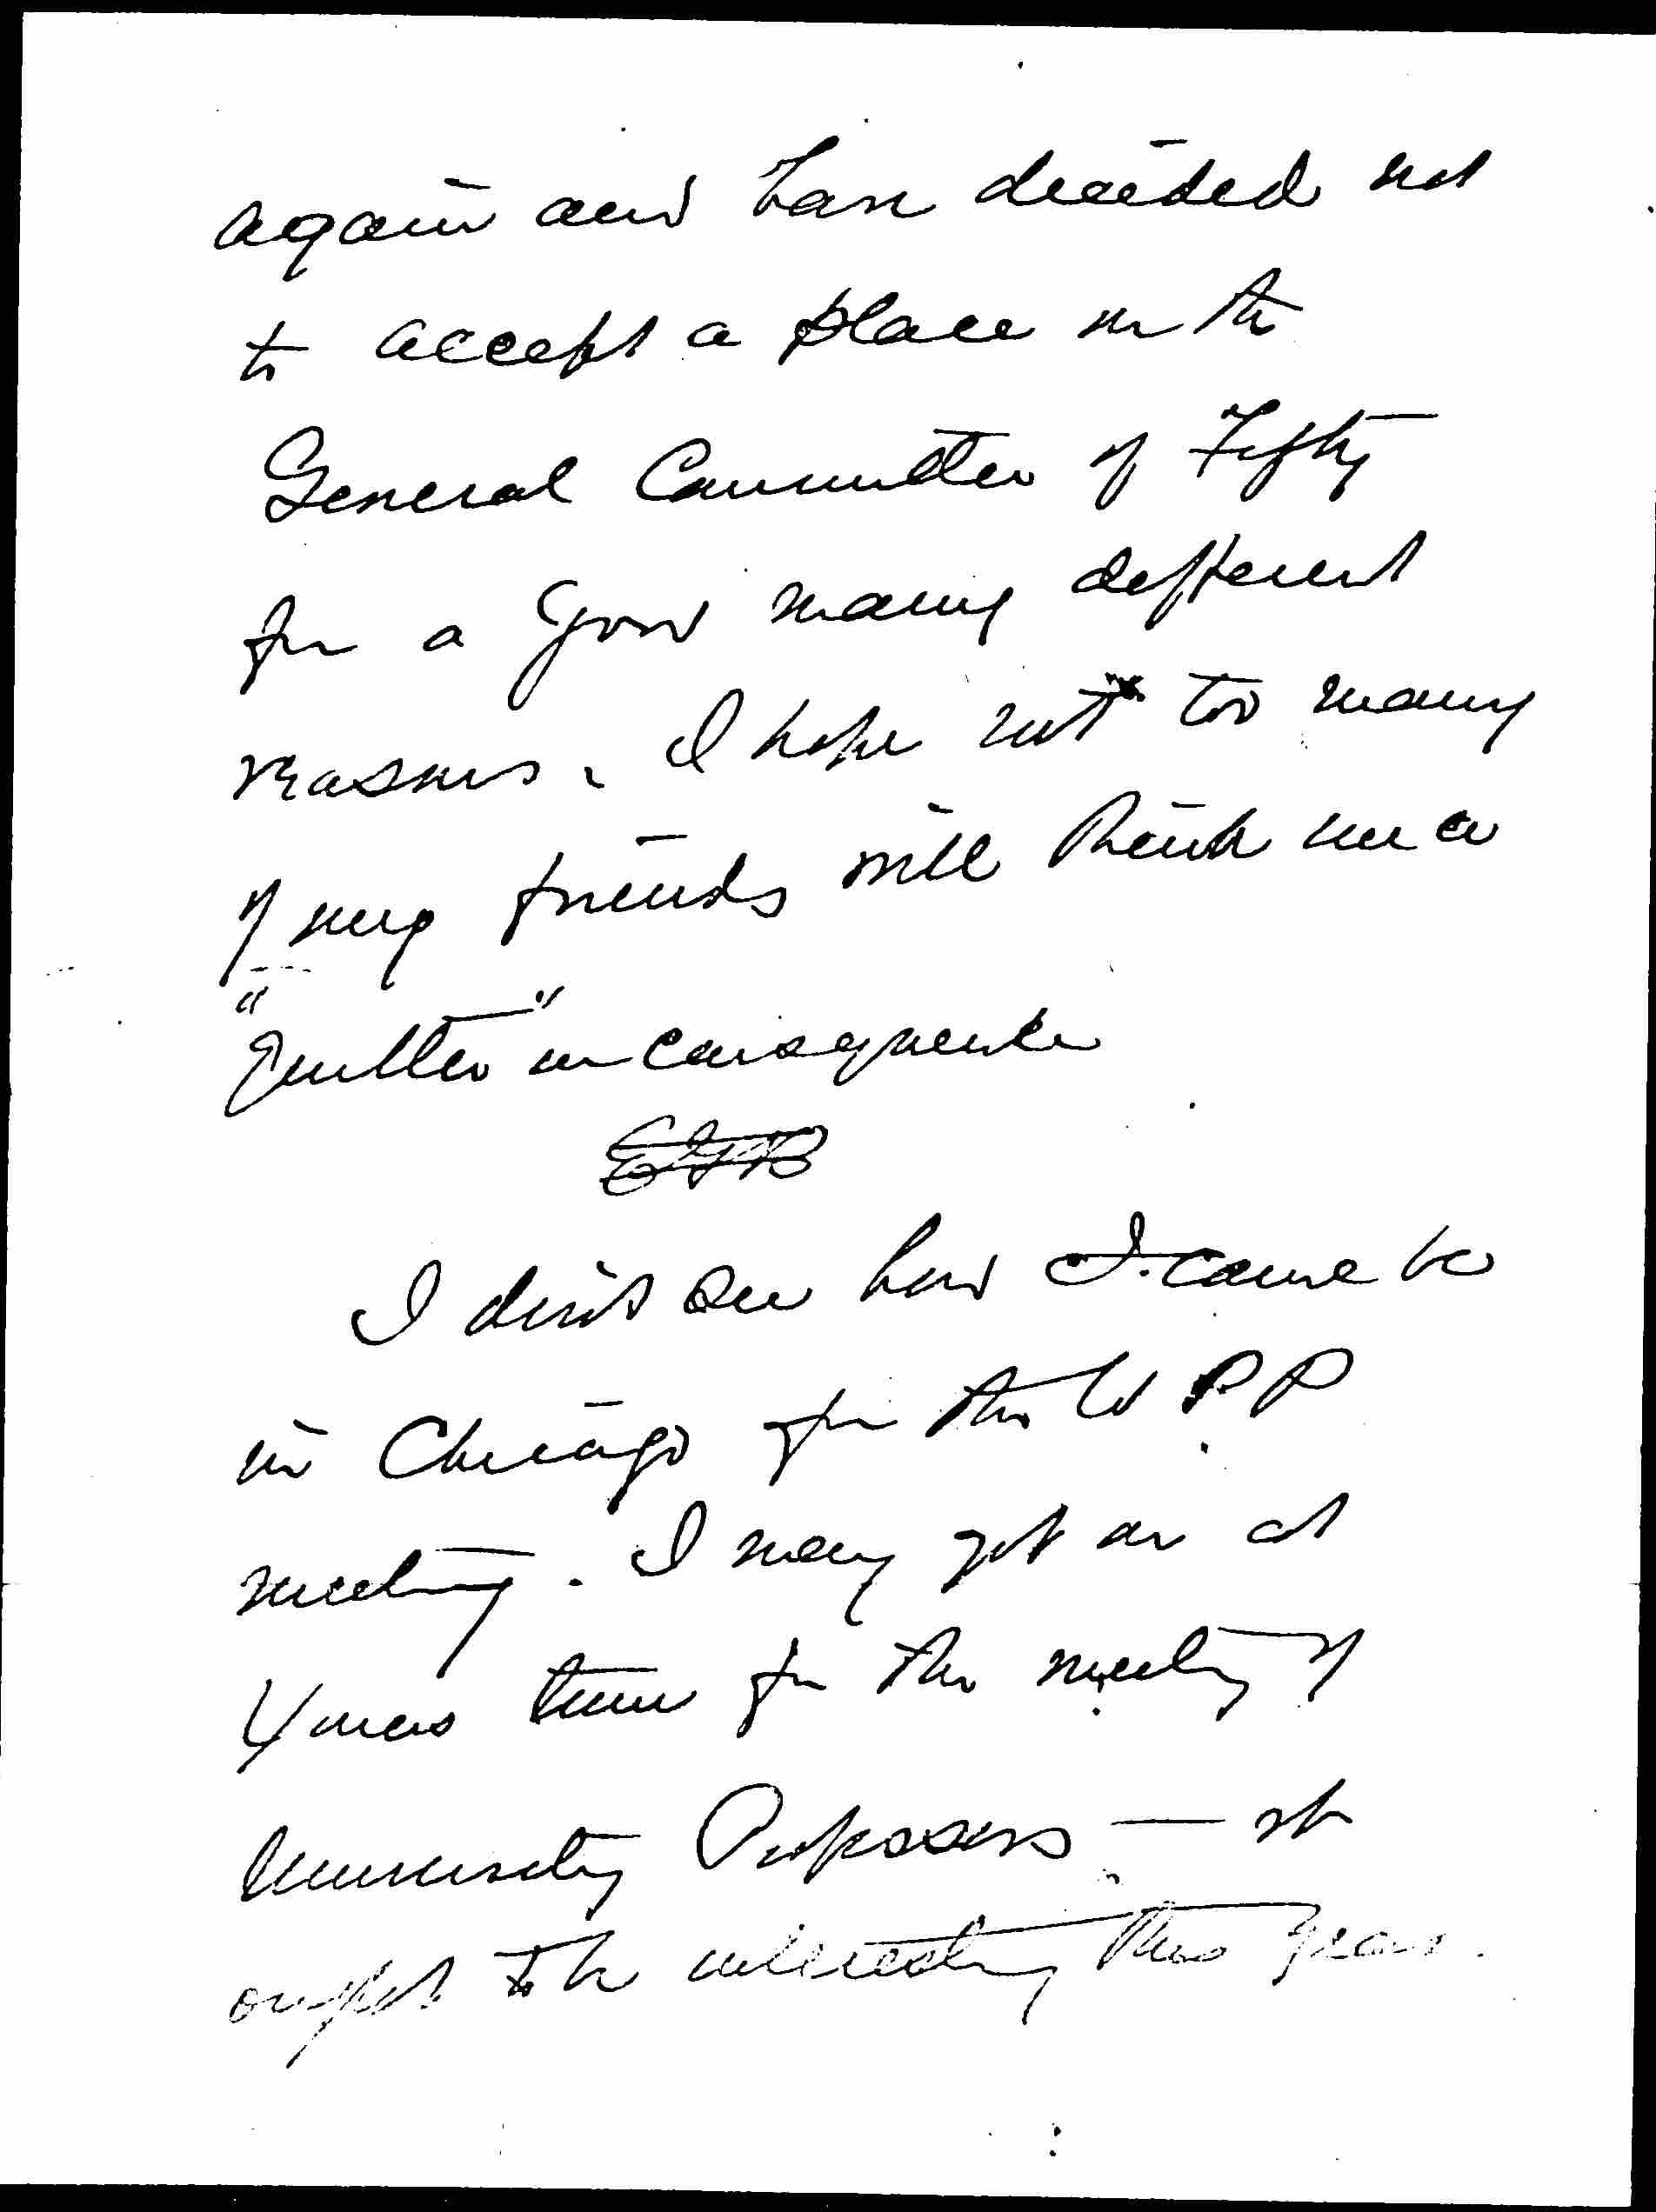 again and have decided not
to accept a place on the
General Committee of Fifty
for a good many different
reasons. I hope not too many
of my friends will think me a
"Quitter" in consequence
EGB
I don't see how I came be
in Chicago for the W P P
meeting. I may get on at
Xmas time for the meeting of
University Professors — it
ought to be interesting this year.